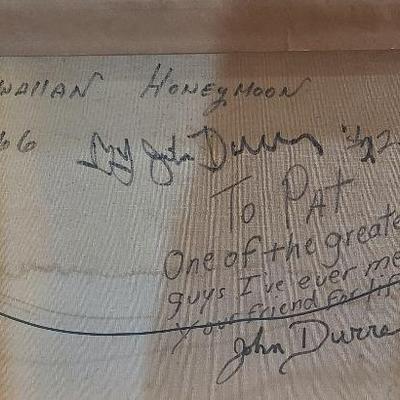 WAIIAN HONEYMOON
66 By John Durra
To PAT
One of the greate
guys I've ever me
Your friend for lif
John Durra